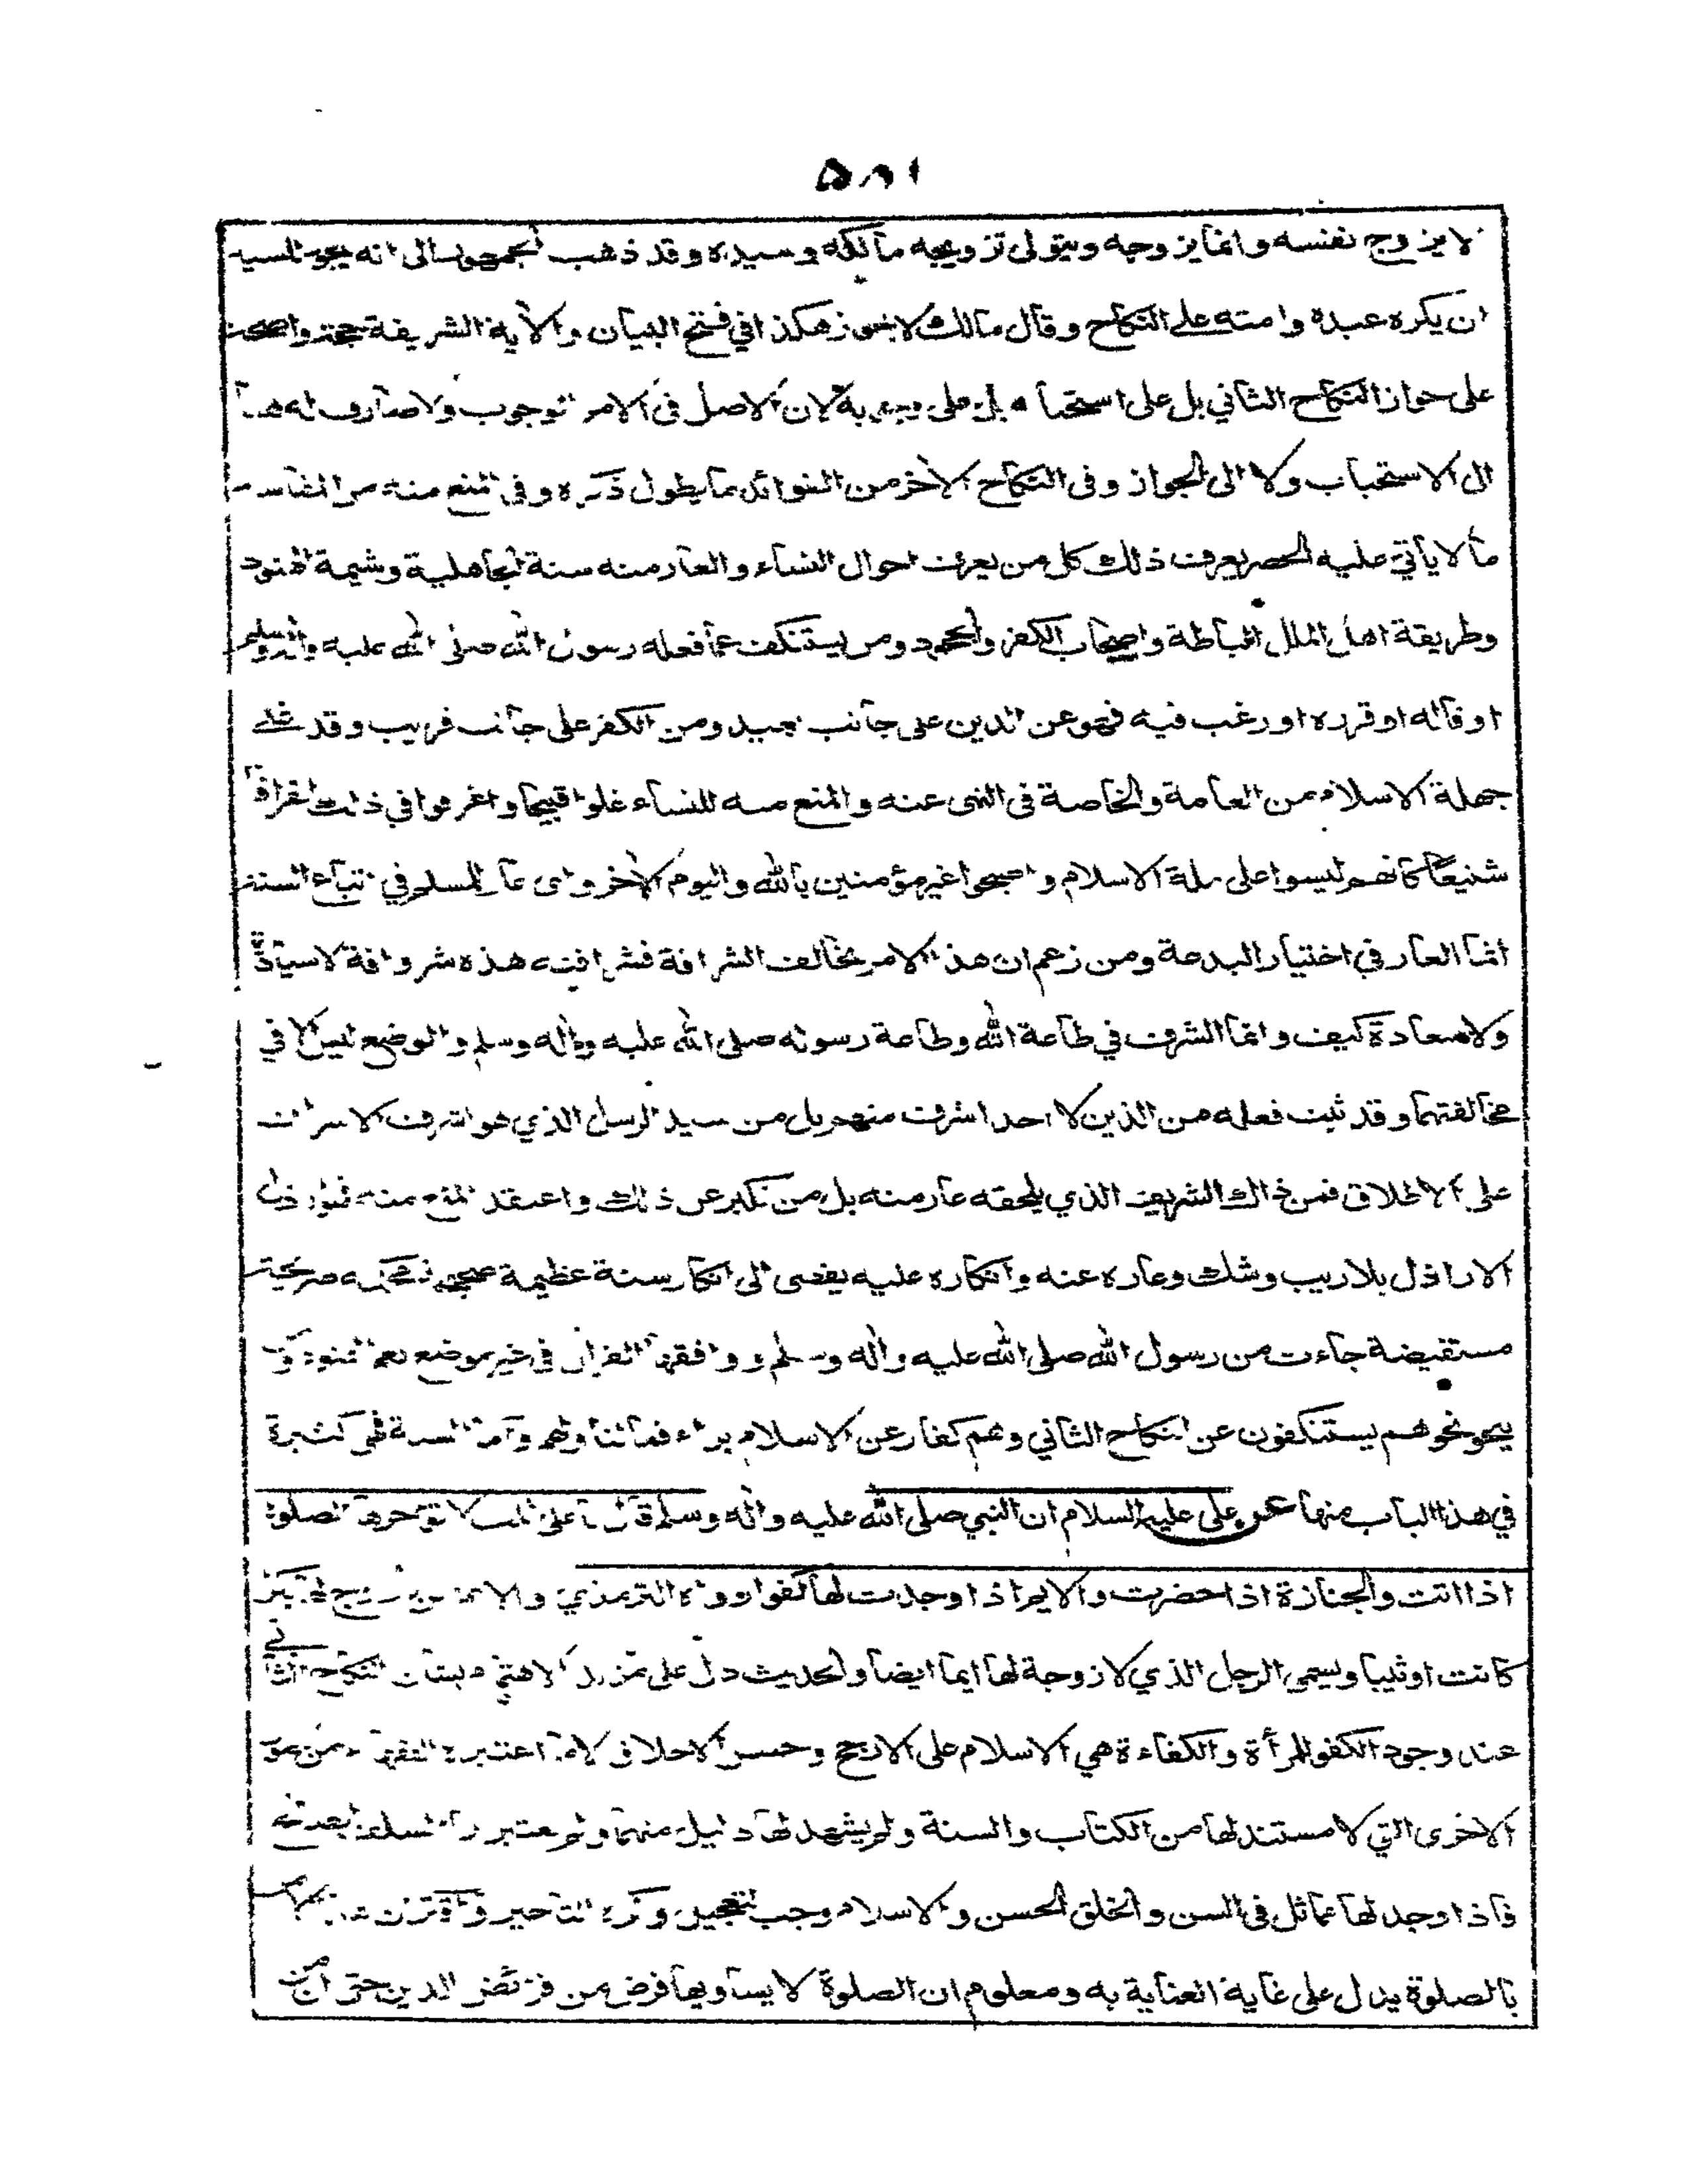 ٥٨١
لا يزوج نفسه وانما يزوجه ويتولى تزويجه مالكه وسيده وقد ذهب الجمهور الى انه يجوز للسيد
ان يكره عبده وامته على النكاح وقال مالك لا يجوز هكذا في فتح البيان والآية الشريفة حجة واضحة
على جواز النكاح الثاني بل على استحبابه بل على وجوبه لان الاصل في الامر الوجوب ولا صارف له هنا
الى الاستحباب ولا الى الجواز وفى النكاح الآخر من الفوائد ما يطول ذكره وفى المنع منه من المفاسد
ما لا يأتي عليه الحصر يعرف ذلك كل من يعرف احوال النساء والعار منه سنة الجاهلية وشيمة الهنود
وطريقة اهل الملل الباطلة واصحاب الكفر والجحود ومن يستنكف عما فعله رسول الله صلى الله عليه وآله وسلم
او قاله او قرره او رغب فيه فهو عن الدين على جانب بعيد ومن الكفر على جانب قريب وقد غلى
جهلة الاسلام من العامة والخاصة فى النهى عنه والمنع منه للنساء غلوا قبيحا واغرقوا في ذلك اغراقا
شنيعا كانهم ليسوا على ملة الاسلام واصبحوا غير مؤمنين بالله واليوم الآخر واى عار للمسلم في اتباع السنة
انما العار في اختيار البدعة ومن زعم ان هذا الامر يخالف الشرافة فشرافته هذه شر وآفة لا سيادة
ولا سعادة كيف وانما الشرف في طاعة الله وطاعة رسوله صلى الله عليه وآله وسلم والوضع ليس الا في
مخالفتهما وقد ثبت فعله من الذين لا احد اشرف منهم بل من سيد الرسل الذي هو اشرف الاشراف
على الاطلاق فمن ذاك الشريف الذي يلحقه عار منه بل من تكبر عن ذلك واعتقد المنع منه فهو ارذل
الاراذل بلا ريب وشك وعاره عنه وانكاره عليه يفضى الى انكار سنة عظيمة صحيحة محكمة صريحة
مستفيضة جاءت من رسول الله صلى الله عليه وآله وسلم ووافقها القرآن في غير موضع نعم الهنود ومن
يحو نحوهم يستنكفون عن النكاح الثاني وهم كفار عن الاسلام برآء فما لنا ولهم واما السنة فهى كثيرة
في هذا الباب منها عن على عليه السلام ان النبي صلى الله عليه وآله وسلم قال يا على ثلث لا تؤخرها الصلوة
اذا اتت والجنازة اذا حضرت والايم اذا وجدت لها كفوا رواه الترمذي والايم من لا زوج لها بكرا
كانت او ثيبا ويسمى الرجل الذي لا زوجة لها ايما ايضا والحديث دل على مزيد الاهتمام بشان النكاح الثاني
عند وجود الكفو للمرأة والكفاءة هي الاسلام على الارجح وحسن الاخلاق لا ما اعتبره الفقهاء من
الاخرى التي لا مستند لها من الكتاب والسنة ولم يشهد لها دليل منهما ولم
فاذا وجد لها مماثل فى السن والخلق الحسن والاسلام وجب التعجيل وكره التاخير
بالصلوة يدل على غاية العناية به ومعلوم ان الصلوة لا يساويها فرض من فرائض الدين حتى ان